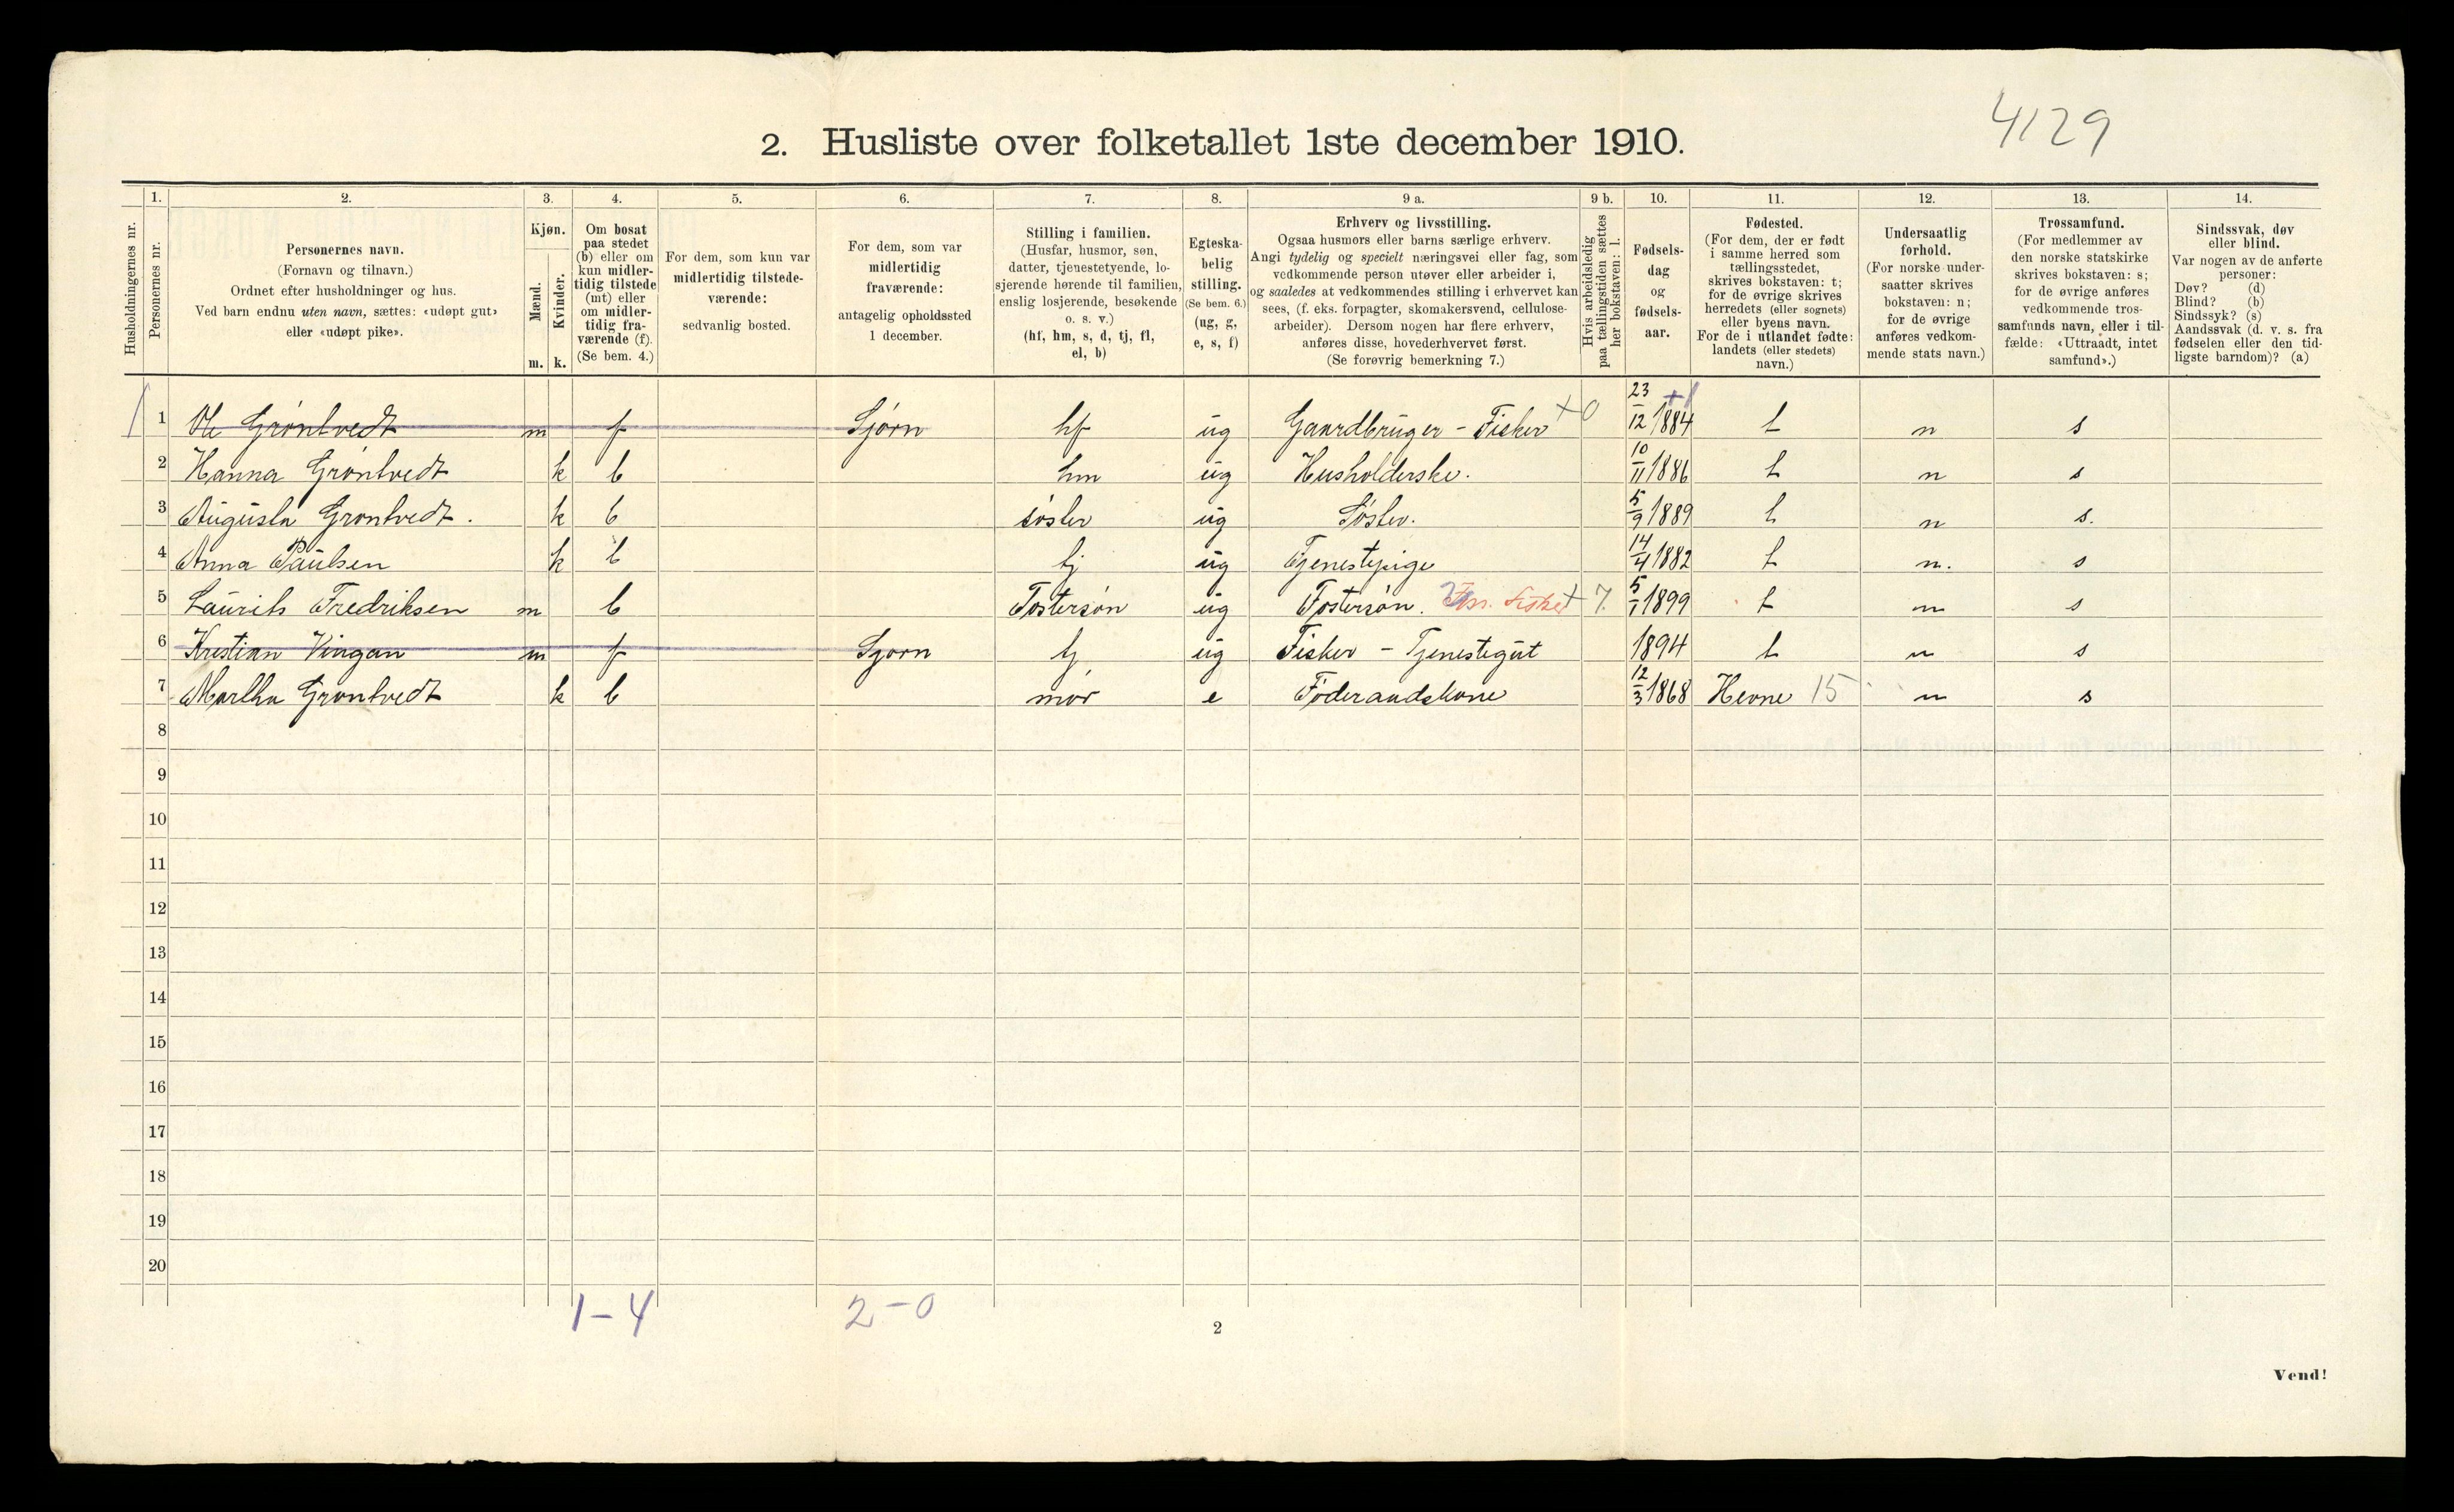 4129
2. Husliste over folketallet 1ste december 1910.
Husholdningernes nr.
1.
Personernes nr.
2.
Personernes navn.
(Fornavn og tilnavn.)
Ordnet efter husholdninger og hus.
Ved barn endnu uten navn, sættes: «udøpt gut»
eller «udøpt pike».
3.
Kjøn.
Mænd. Kvinder.
m. k.
4.
Om bosat
paa stedet
(b) eller om
kun midler-
tidig tilstede
(mt) eller
om midler-
tidig fra-
værende (f).
(Se bem. 4.)
5.
For dem, som kun var
midlertidig tilstede-
værende:
sedvanlig bosted.
6.
For dem, som var
midlertidig
fraværende:
antagelig opholdssted
1 december.
7.
Stilling i familien.
(Husfar, husmor, søn,
datter, tjenestetyende, lo-
sjerende hørende til familien,
enslig losjerende, besøkende
o. s. v.)
(hf, hm, s, d, tj, fl,
el, b)
8.
Egteska-
belig
stilling.
(Se bem. 6.)
(ug, g,
e, s, f)
9 a.
Erhverv og livsstilling.
Ogsaa husmors eller barns særlige erhverv.
Angi tydelig og specielt næringsvei eller fag, som
vedkommende person utøver eller arbeider i,
og saaledes at vedkommendes stilling i erhvervet kan
sees, (f. eks. forpagter, skomakersvend, cellulose-
arbeider). Dersom nogen har flere erhverv,
anføres disse, hovederhvervet først.
(Se forøvrig bemerkning 7.)
9 b.
Hvis arbeidsledig
paa tællingstiden sættes
her bokstaven: l.
10.
Fødsels-
dag
og
fødsels-
aar.
11.
Fødested.
(For dem, der er født
i samme herred som
tællingsstedet,
skrives bokstaven: t;
for de øvrige skrives
herredets (eller sognets)
eller byens navn.
For de i utlandet fødte:
landets (eller stedets)
navn.)
12.
Undersaatlig
forhold.
(For norske under-
saatter skrives
bokstaven: n;
for de øvrige
anføres vedkom-
mende stats navn.)
13.
Trossamfund.
(For medlemmer av
den norske statskirke
skrives bokstaven: s;
for de øvrige anføres
vedkommende tros-
samfunds navn, eller i til-
fælde: «Uttraadt, intet
samfund».)
14.
Sindssvak, døv
eller blind.
Var nogen av de anførte
personer:
Døv? (d)
Blind? (b)
Sindssyk? (s)
Aandssvak (d. v. s. fra
fødselen eller den tid-
ligste barndom)? (a)
1 Ole Grøntvedt m f Sjørn hf ug Gaardbruger - Fisker +0 23/12 1884 t n s
2 Hanna Grøntvedt k b hm ug Husholderske. 10/11 1886 t n s
3 Augusta Grøntvedt. k b søster ug Søster. 5/9 1889 t n s.
4 Anna Paulsen k b tj ug Tjenestepige 14/4 1882 t n. s
5 Laurits Fredriksen m b Fostersøn ug Fostersøn. + 7. 5/1 1899 t n s
6 Kristian Vingan m f Sjørn tj ug Fisker - Tjenestegut 1894 t n s
7 Martha Grøntvedt k b mor e Føderaadskone 12/3 1868 Hevne 15 n s
8
9
10
11
12
13
14
15
16
17
18
19
20
1-4 2-0
2
Vend!